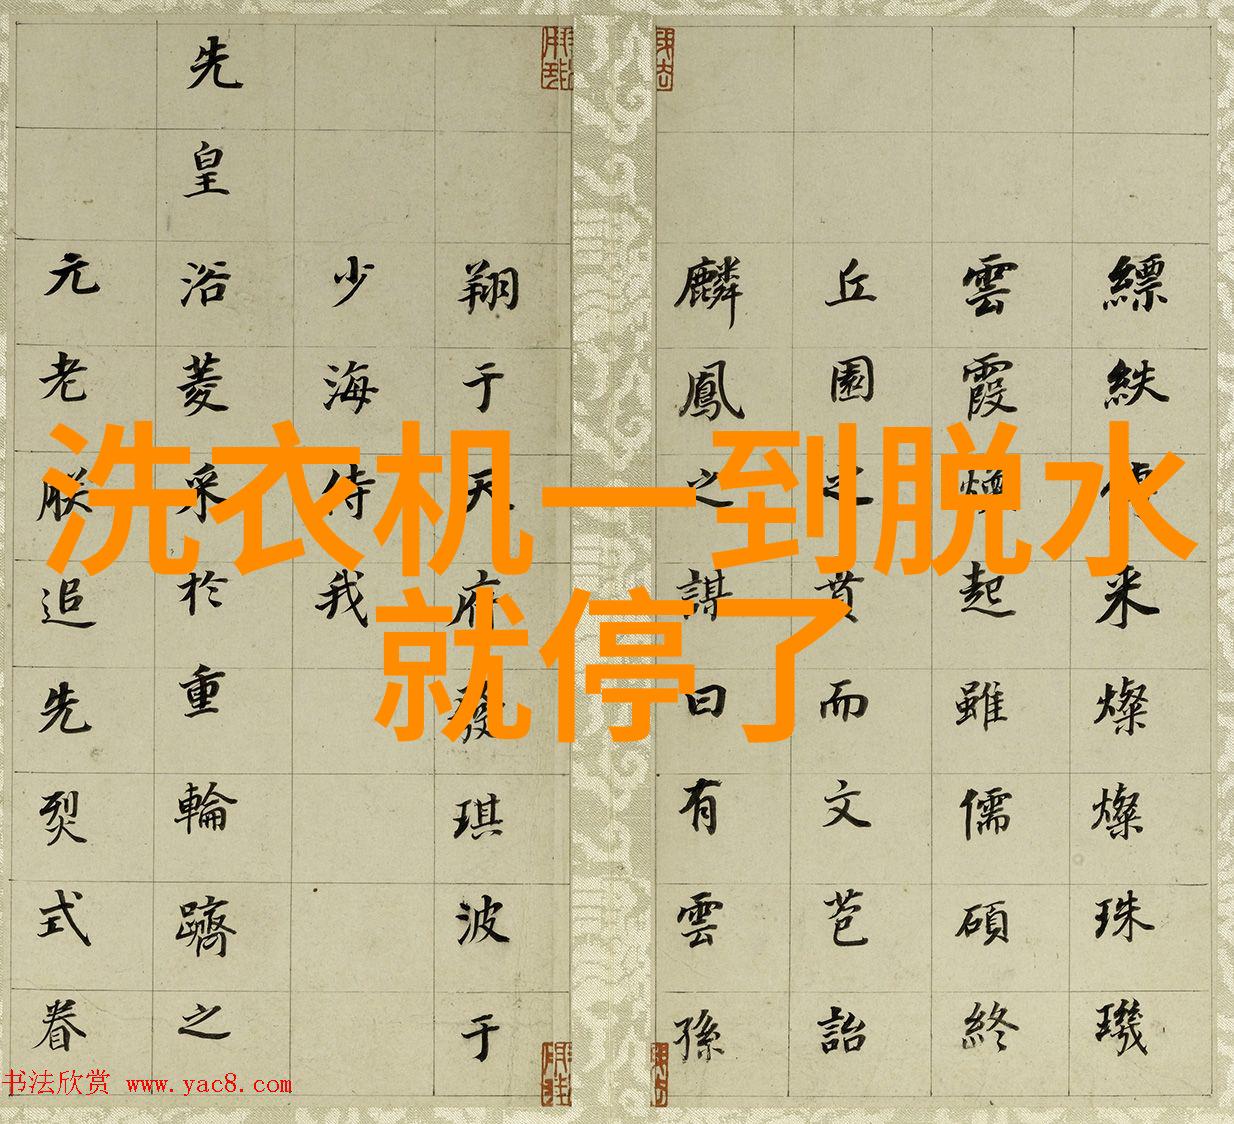 洗衣机一到脱水
就停了
縹紩采燦燦珠璣
雲霞煥起雖儒碩終
丘園之賁而文芑詒
麟鳳之謀曰有雲孫
翔于天府發琪波于
少海侍我
先皇浴菱采於重輪躋之
元老朕追先烈式眷
书法欣赏 www.yac8.com